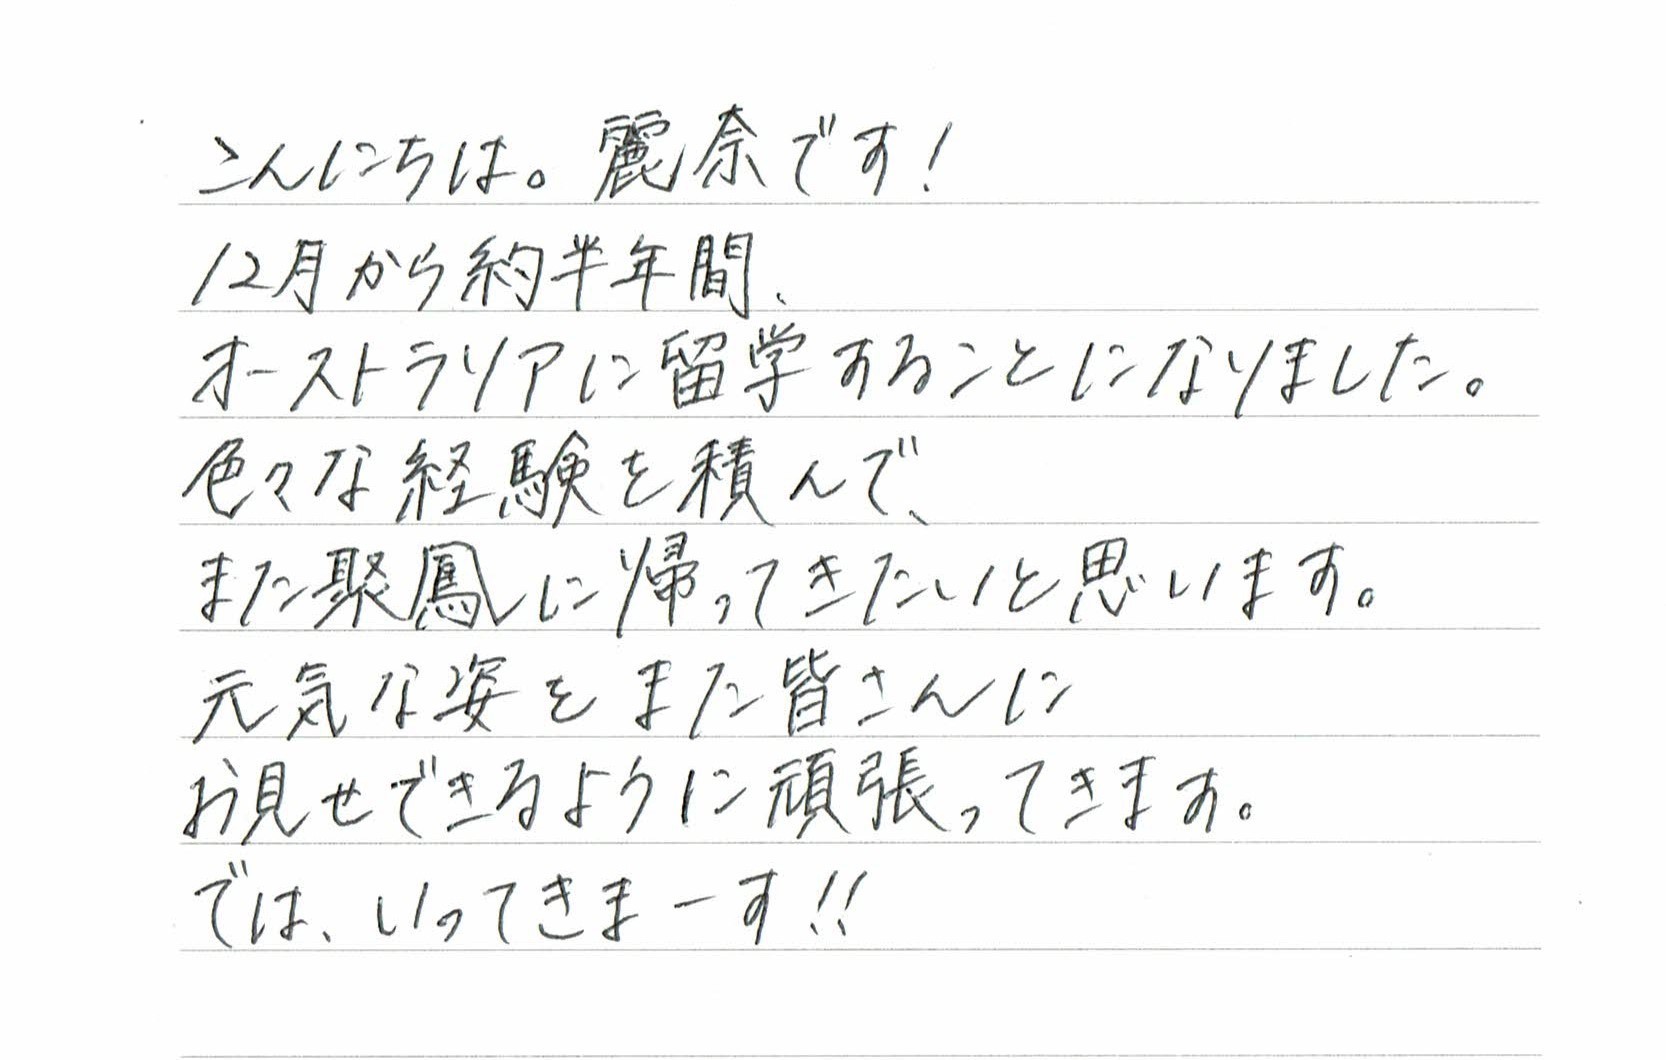 こんにちは。麗奈です!
12月から約半年間、
オーストラリアに留学することになりました。
色々な経験を積んで、
また聚鳳に帰ってきたいと思います。
元気な姿をまた皆さんに
お見せできるように頑張ってきます。
では、いってきまーす!!